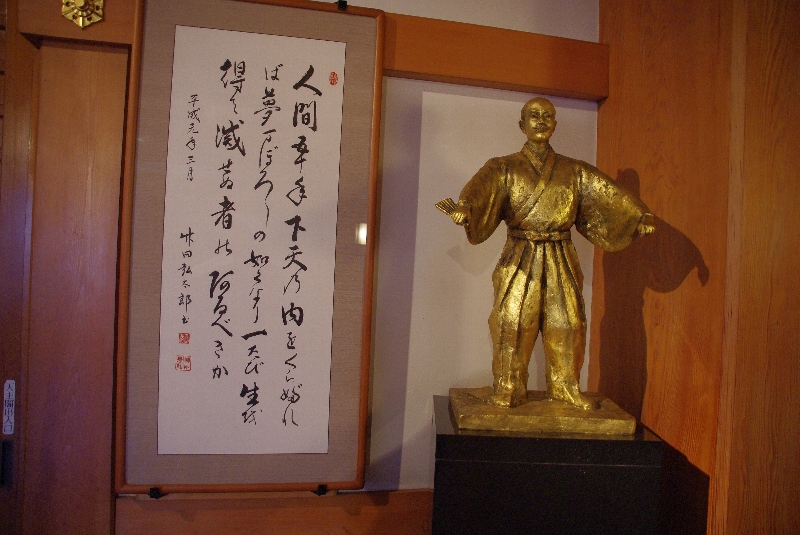 人間五十年下天乃内をくらぶれ
ば夢まぼろしの如くなり一たび生を
得て滅せぬ者のあるべきか
平成元年三月
竹田弘太郎書
出入口